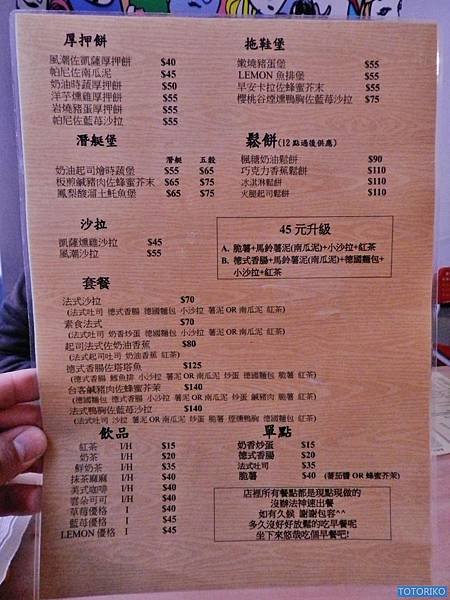 厚押餅
風潮佐凱薩厚押餅 $40
帕尼佐南瓜泥 $45
奶油時蔬厚押餅 $50
洋芋燻雞厚押餅 $55
岩燒豬蛋厚押餅 $55
帕尼佐藍莓沙拉 $55
拖鞋堡
嫩燒豬蛋堡 $55
LEMON 魚排堡 $55
早安卡拉佐蜂蜜芥末 $55
櫻桃谷煙燻鴨胸佐藍莓沙拉 $75
潛艇堡
潛艇 五穀
奶油起司燴時蔬堡 $55 $65
板煎鹹豬肉佐蜂蜜芥末 $65 $75
鳳梨酸溜土魠魚堡 $65 $75
鬆餅(12 點過後供應)
楓糖奶油鬆餅 $90
巧克力香蕉鬆餅 $110
冰淇淋鬆餅 $110
火腿起司鬆餅 $110
沙拉
凱薩燻雞沙拉 $45
風潮沙拉 $55
45 元升級
A. 脆薯+馬鈴薯泥(南瓜泥)+小沙拉+紅茶
B. 德式香腸+馬鈴薯泥(南瓜泥)+德國麵包+
小沙拉+紅茶
套餐
法式沙拉 $70
(法式吐司 德式香腸 德國麵包 小沙拉 薯泥 OR 南瓜泥 紅茶)
素食法式 $70
(法式吐司 奶香炒蛋 德國麵包 小沙拉 薯泥 OR 南瓜泥 紅茶)
起司法式佐奶油香蕉 $80
(法式起司吐司 奶油香蕉 紅茶)
德式香腸佐塔塔魚 $125
(德式香腸 鱈魚排 小沙拉 薯泥 OR 南瓜泥 炒蛋 德國麵包 脆薯 紅茶)
台客鹹豬肉佐蜂蜜芥茉 $140
(德國麵包 德式香腸 小沙拉 薯泥 OR 南瓜泥 炒蛋 鹹豬肉 脆薯 紅茶)
法式鴨胸佐藍莓沙拉 $140
(法式吐司 沙拉 薯泥 OR 南瓜泥 炒蛋 脆薯 煙燻鴨胸 德國麵包 紅茶)
飲品
紅茶 I/H $15
奶茶 I/H $20
鮮奶茶 I/H $35
抹茶麻麻 I/H $40
美式咖啡 I/H $40
雲朵可可 I/H $40
草莓優格 I $40
藍莓優格 I $45
LEMON 優格 I $45
單點
奶香炒蛋 $15
德式香腸 $20
法式吐司 $35
脆薯 $40 (蕃茄醬 OR 蜂蜜芥茉)
店裡所有餐點都是現點現做的
沒辦法神速出餐
如有久候 謝謝包容^^
多久沒好好放鬆的吃早餐呢
坐下來悠哉吃個早餐吧!
TOTORIKO